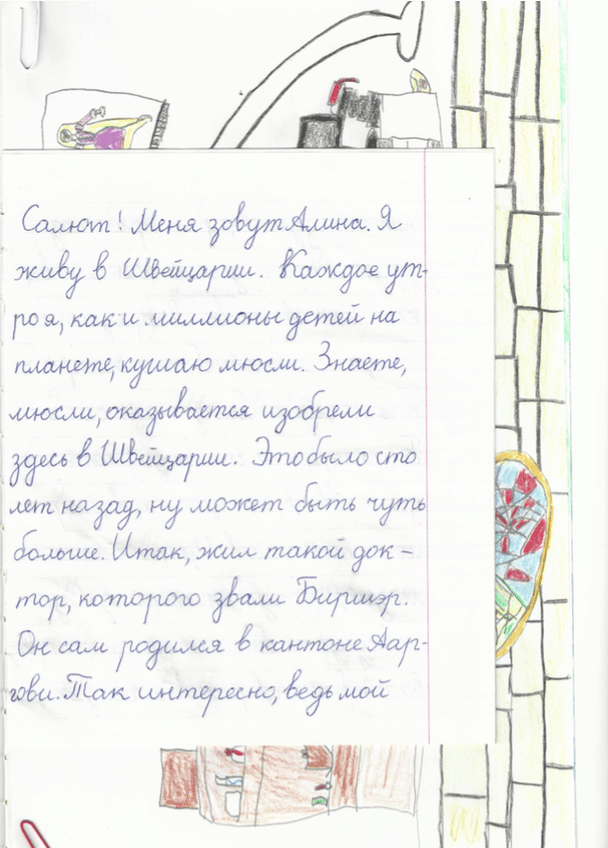 Салют! Меня зовут Алина. Я
живу в Швейцарии. Каждое ут-
ро я, как и миллионы детей на
планете, кушаю мюсли. Знаете,
мюсли, оказывается изобрели
здесь в Швейцарии. Это было сто
лет назад, ну может быть чуть
больше. Итак, жил такой док-
тор, которого звали Биршэр.
Он сам родился в кантоне Аар-
гови. Так интересно, ведь мой